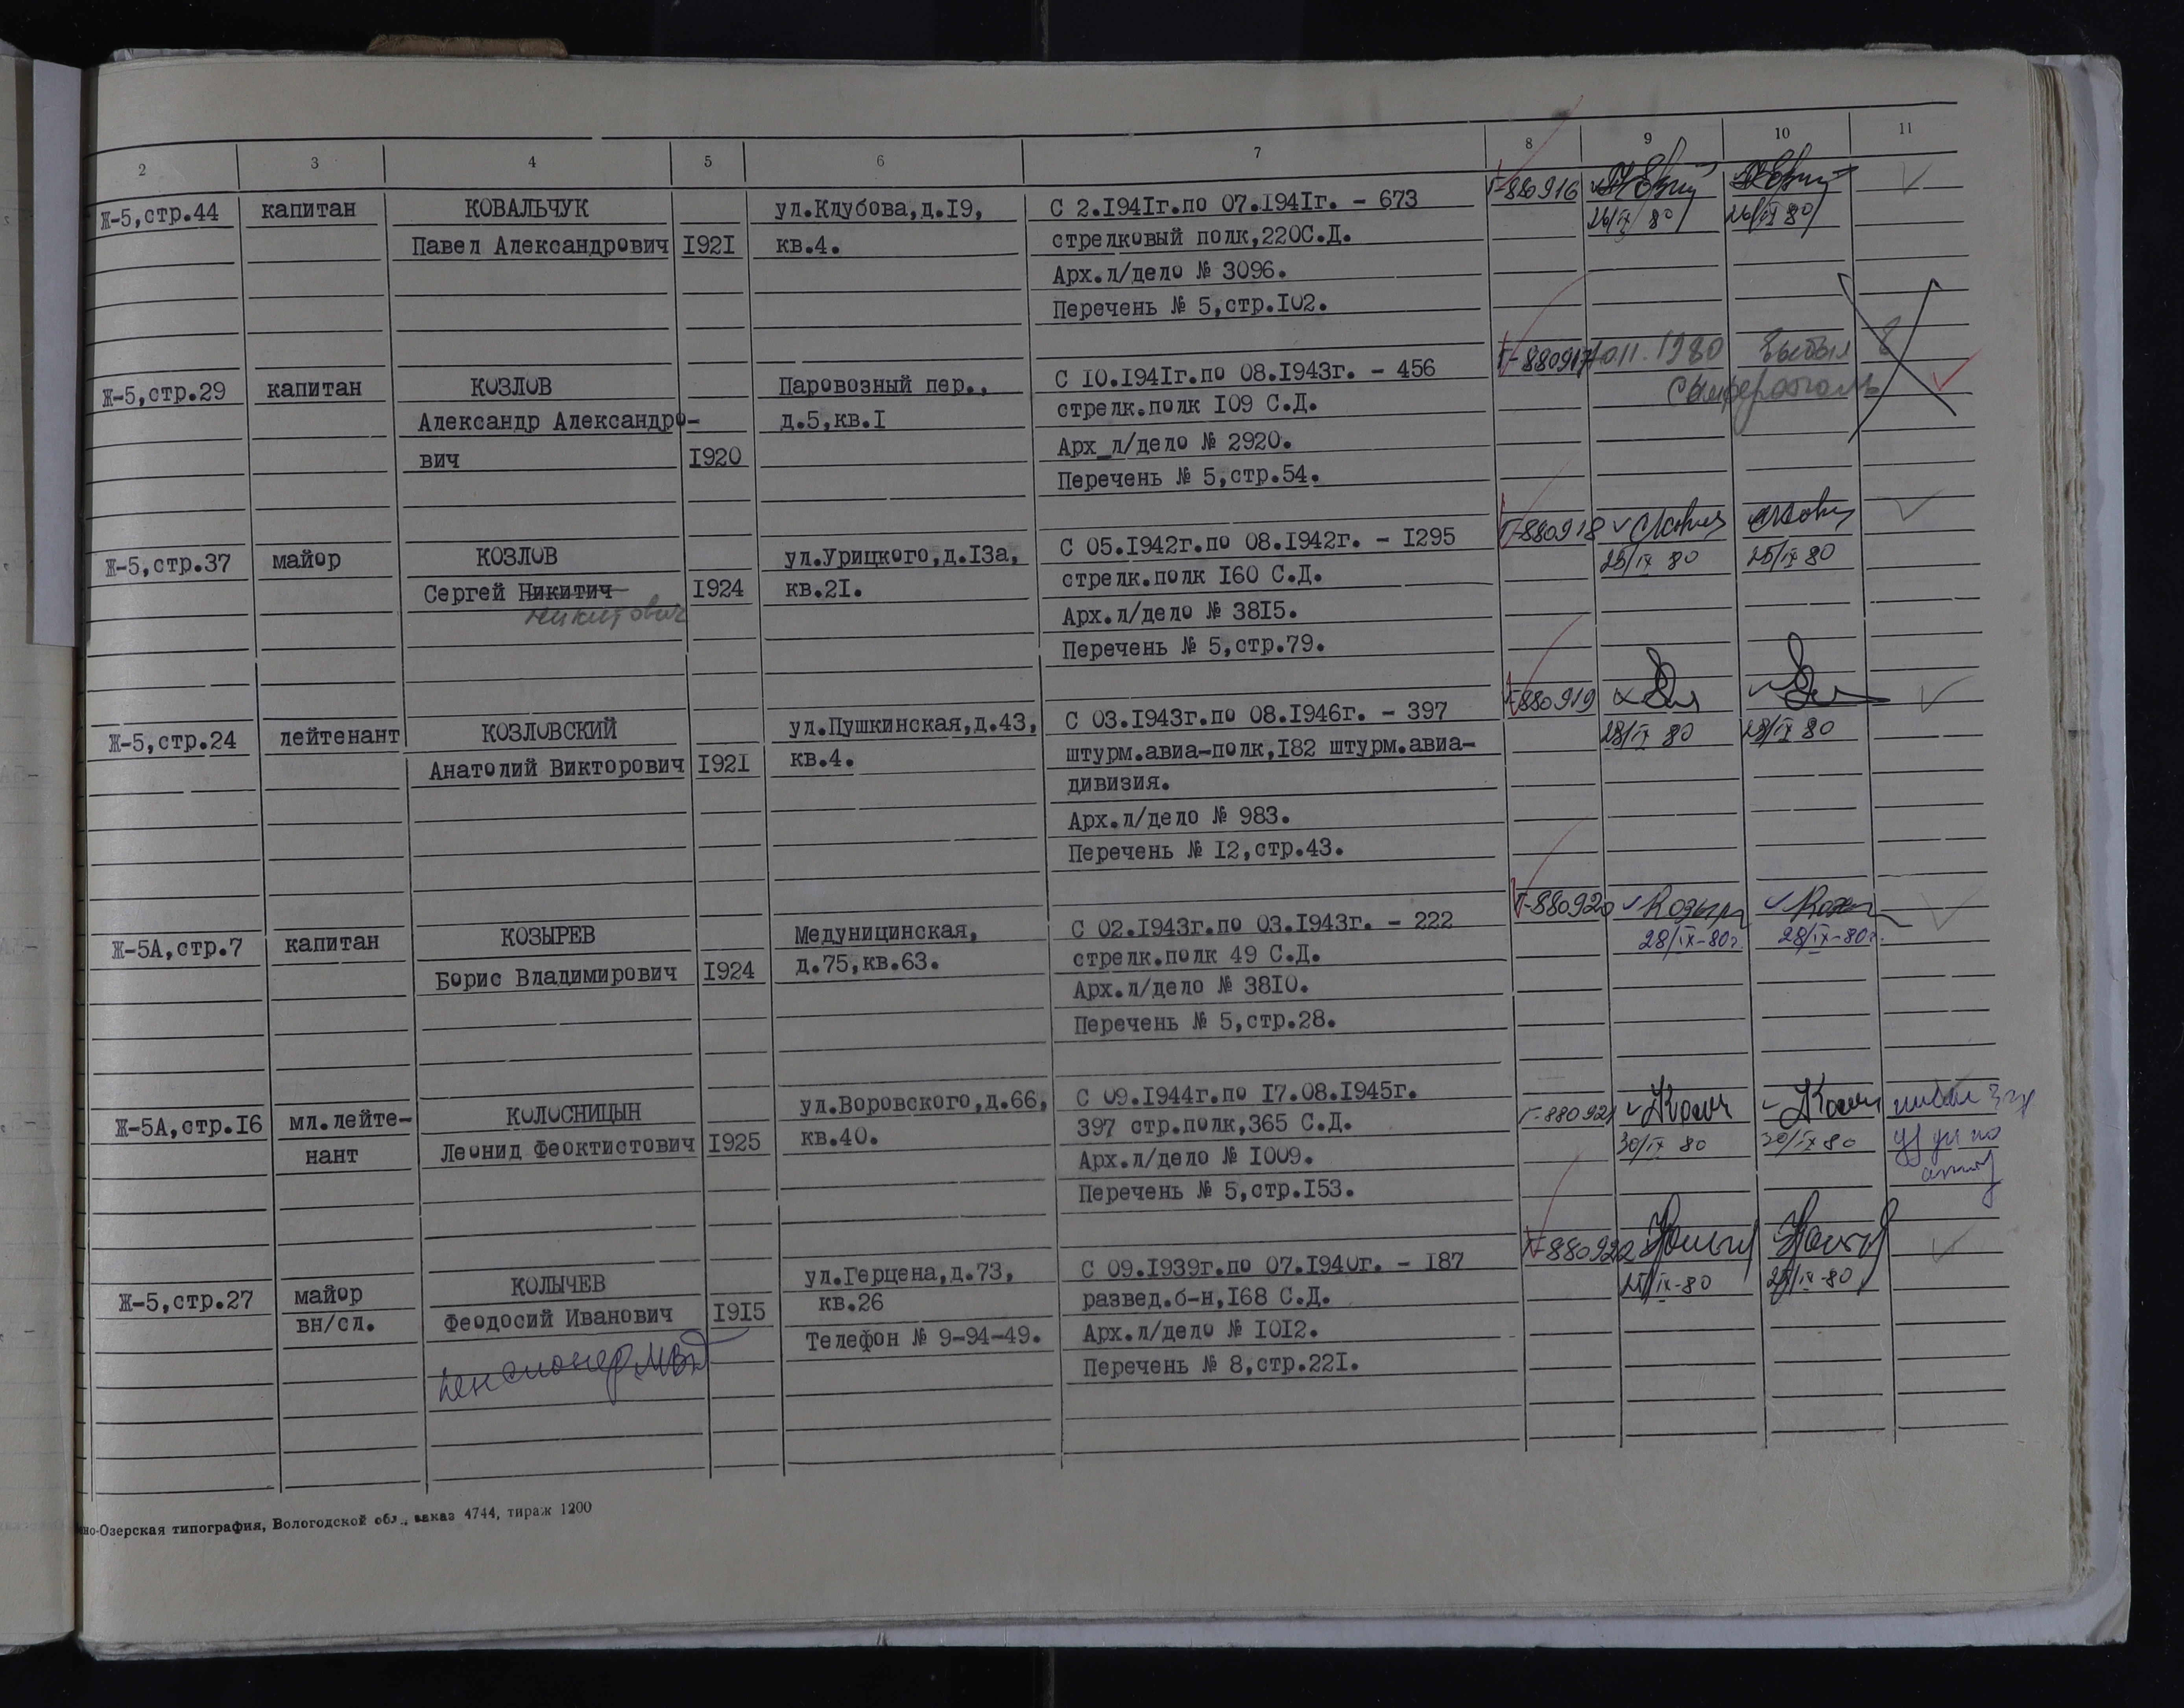 2 3 4 5 6 7 8 9 10 11
Ж-5,стр.44 капитан КОВАЛЬЧУК ул.Клубова,д.I9, С 2.I94Iг.по 07.I94Iг. - 673 Г-880916
Павел Александрович I92I кв.4. стрелковый полк,220С.Д. 26/IX 80 26/IX 80
Арх.л/дело № 3096.
Перечень № 5,стр.I02.
Ж-5,стр.29 капитан КОЗЛОВ Паровозный пер., С I0.I94Iг.по 08.I943г. - 456 Г-880917 1980 выбыл в
Александр Александро- д.5,кв.I стрелк.полк I09 С.Д. Симферополь
вич I920 Арх_л/дело № 2920.
Перечень № 5,стр.54.
Ж-5,стр.37 майор КОЗЛОВ ул.Урицкого,д.I3а, С 05.I942г.по 08.I942г. - I295 Г-880918
Сергей Никитич I924 кв.2I. стрелк.полк I60 С.Д. 25/IX 80 25/IX 80
Никитович Арх.л/дело № 38I5.
Перечень № 5,стр.79.
Ж-5,стр.24 лейтенант КОЗЛОВСКИЙ ул.Пушкинская,д.43, С 03.I943г.по 08.I946г. - 397 Г-880919
Анатолий Викторович I92I кв.4. штурм.авиа-полк,I82 штурм.авиа- 28/IX 80 28/IX 80
дивизия.
Арх.л/дело № 983.
Перечень № I2,стр.43.
Ж-5А,стр.7 капитан КОЗЫРЕВ Медуницинская, С 02.I943г.по 03.I943г. - 222 Г-880920
Борис Владимирович I924 д.75,кв.63. стрелк.полк 49 С.Д. 28/IX-80г. 28/IX-80г.
Арх.л/дело № 38I0.
Перечень № 5,стр.28.
Ж-5А,стр.I6 мл.лейте- КОЛОСНИЦЫН ул.Воровского,д.66, С 09.I944г.по I7.08.I945г. Г-880921
нант Леонид Феоктистович I925 кв.40. 397 стр.полк,365 С.Д. 30/IX 80 30/IX 80
Арх.л/дело № I009.
Перечень № 5,стр.I53.
Ж-5,стр.27 майор КОЛЫЧЕВ ул.Герцена,д.73, С 09.I939г.по 07.I940г. - I87 Г-880922
вн/сл. Феодосий Иванович I9I5 кв.26 развед.б-н,I68 С.Д.
пенсионер МВД Телефон № 9-94-49. Арх.л/дело № I0I2.
Перечень № 8,стр.22I.
но-Озерская типография, Вологодской обл., заказ 4744, тираж 1200